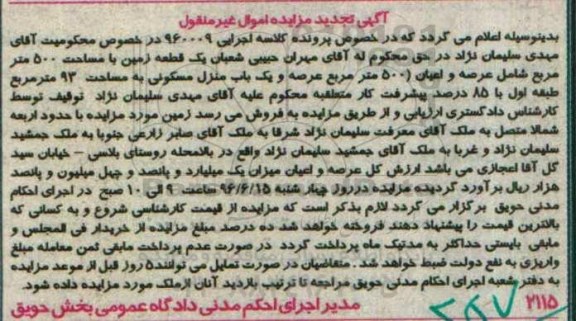 آگهی تجدید مزایده اموال غیرمنقول
بدینوسیله اعلام می گردد که در خصوص پرونده کلاسه اجرایی ۹۶۰۰۰۹ در خصوص محکومیت آقای
مهدی سلیمان نژاد در حق محکوم له آقای مهران حبیبی شعبان یک قطعه زمین با مساحت ۵۰۰ متر
مربع شامل عرصه و اعیان (۵۰۰ متر مربع عرصه و یک باب منزل مسکونی به مساحت ۹۳ مترمربع
طبقه اول با ۸۵ درصد پیشرفت کار متعلقبه محکوم علیه آقای مهدی سلیمان نژاد توقیف توسط
کارشناس دادگستری ارزیابی و از طریق مزایده به فروش می رسد زمین مورد مزایده با حدود اربعه
شمالا متصل به ملک آقای معرفت سلیمان نژاد شرقا به ملک آقای صابر زارعی جنوبا به ملک جمشید
سلیمان نژاد و غربا به ملک آقای جمشید سلیمان نژاد واقع در بالامحله روستای بلاسی - خیابان سید
گل آقا اعجازی می باشد ارزش کل عرصه و اعیان میزان یک میلیارد و پانصد و چهل میلیون و پانصد
هزار ریال برآورد گردیده مزایده درروز چهارشنبه ۹۶/۶/۱۵ ساعت ۹ الی ۱۰ صبح در اجرای احکام
مدنی حویق برگزار می گردد لازم بذکر است که مزایده از قیمت کارشناسی شروع و به کسانی که
بالاترین قیمت را پیشنهاد دهند فروخته خواهد شد ده درصد مبلغ مزایده از خریدار فی المجلس و
مابقی بایستی حداکثر به مدتیک ماه پرداخت گردد در صورت عدم پرداخت مابقی ثمن معامله مبلغ
واریزی به نفع دولت ضبط خواهد شد. متقاضیان در صورت تمایل می توانند۵ روز قبل از موعد مزایده
به دفتر شعبه اجرای احکام مدنی حویق مراجعه تا ترتیب بازدید آنان ازملک مورد مزایده داده شود.
۲۱۱۵ مدیر اجرای احکم مدنی دادگاه عمومی بخش حویق